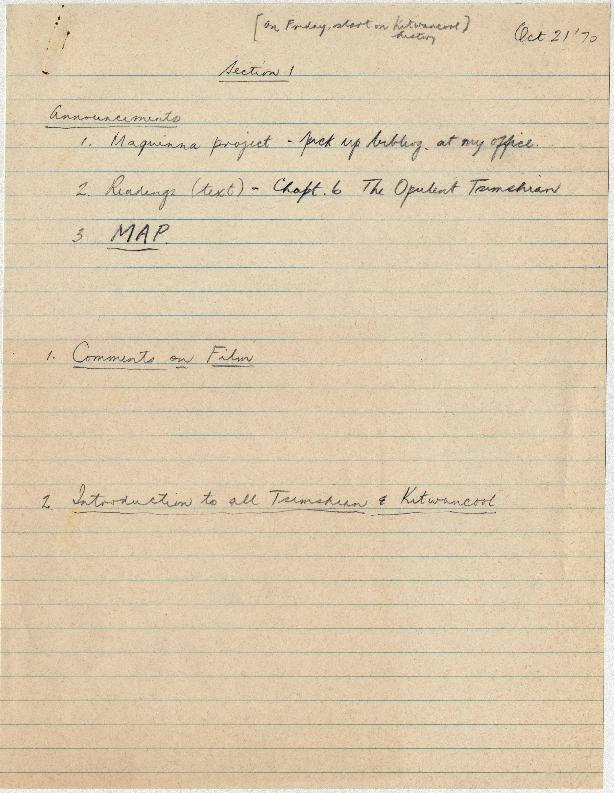 [on Friday, start on Kitwancool
history]
Oct 21 '70
Section 1
Announcements
1. Maquinna project - pick up bibliog. at my office.
2. Readings (text) - Chapt. 6 The Opulent Tsimshian
3 MAP
1. Comments on Film
2. Introduction to all Tsimshian & Kitwancool